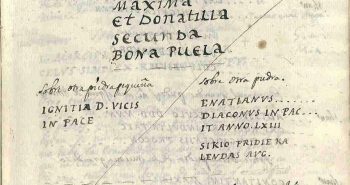 MAXIMA
ET DONATILLA
SECUNDA
BONA PUELA
Sobre otra piedra pequeña
IGNITIA D. VICIS
IN PACE
Sobre otra piedra.
ENATIANUS......
DIACONUS IN PAC...
IT ANNO. LXIII
SIKIO PRIDIE KA
LENDAS AUG.